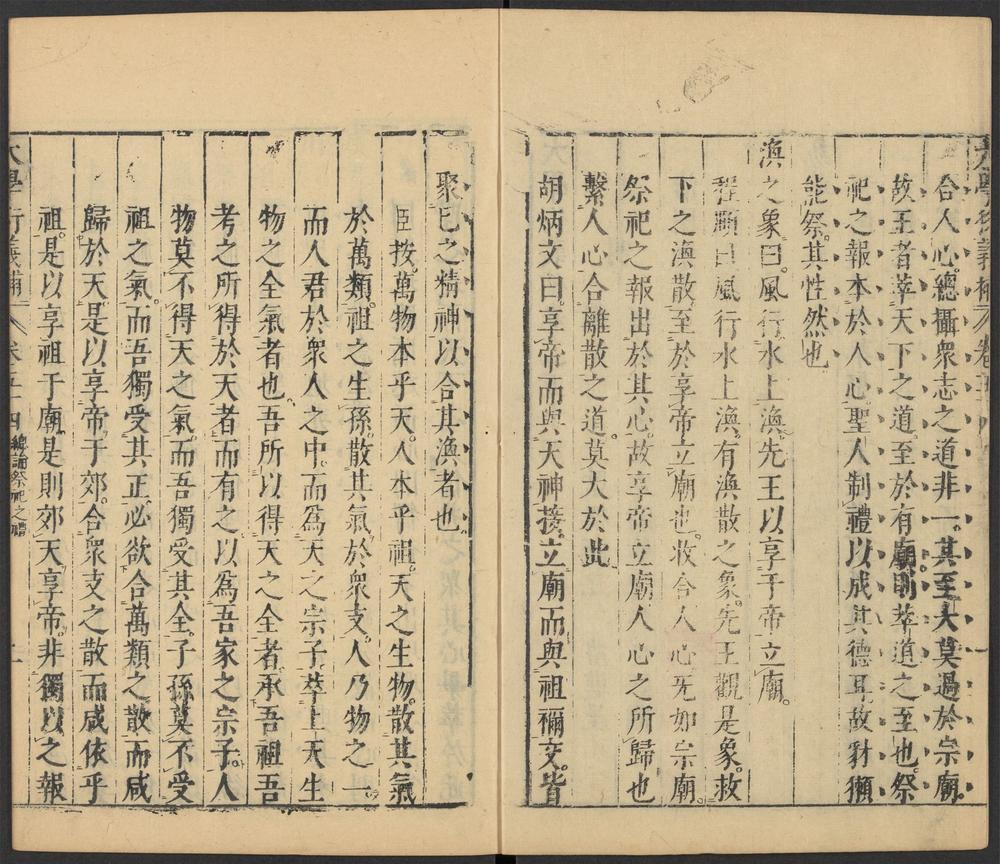 大學衍義補 卷五十四
合人心總攝衆志之道非一其至大莫過於宗廟
故王者萃天下之道至於有廟則萃道之至也祭
祀之報本於人心聖人制禮以成其德耳故豺獺
能祭其性然也
渙之象曰風行水上渙先王以享于帝立廟
程頤曰風行水上渙有渙散之象先王觀是象救
下之渙散至於享帝立廟也收合人心无如宗廟
祭祀之報出於其心故享帝立廟人心之所歸也
繫人心合離散之道莫大於此
胡炳文曰享帝而與天神接立廟而與祖禰交皆
聚已之精神以合其渙者也
臣按萬物本乎天人本乎祖天之生物散其氣
於萬類祖之生孫散其氣於衆支人乃物之一
而人君於衆人之中而爲天之宗子萃上天生
物之全氣者也吾所以得天之全者承吾祖吾
考之所得於天者而有之以爲吾家之宗子人
物莫不得天之氣而吾獨受其全子孫莫不受
祖之氣而吾獨受其正必欲合萬類之散而咸
歸於天是以享帝于郊合衆支之散而咸依乎
祖是以享祖于廟是則郊天享帝非獨以之報
大學衍義補 卷五十四 總論祭祀之禮